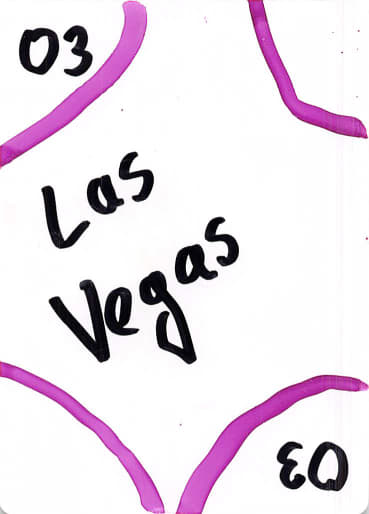 03
Las
Vegas
03